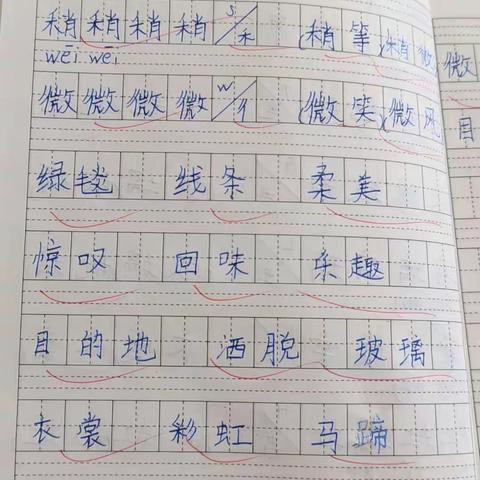 稍稍稍稍 s/禾 (稍等)(稍微)
wēi wēi
微微微微 w/彳 (微笑)(微风) 微
绿毯 线条 柔美 目
惊叹 回味 乐趣
目的地 洒脱 玻璃
衣裳 彩虹 马蹄